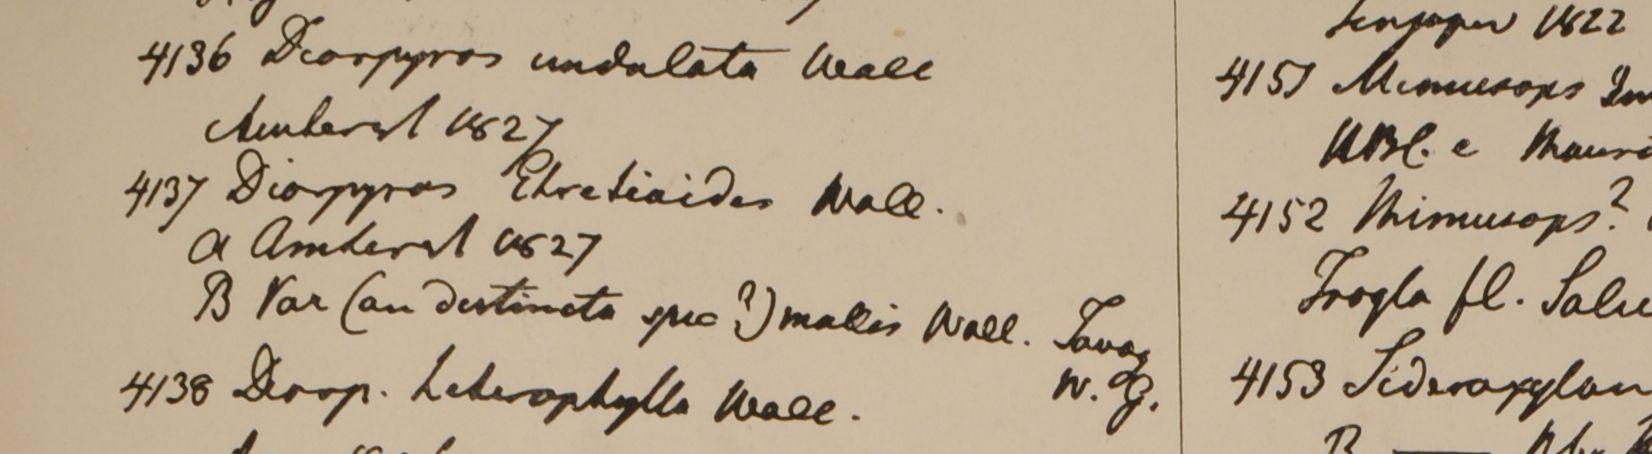 4136 Diospyros undulata Wall
Amherst 1827
4137 Diospyros Ehretioides Wall.
a Amherst 1827
B Var (an distincta spec?) mollis Wall. Tavoy
W. G.
4138 Diosp. heterophylla Wall.
Singapur 1822
4151 Mimusops Im
HBC. e Maur
4152 Mimusops?
Trogla fl. Salu
4153 Sideroxylon
B